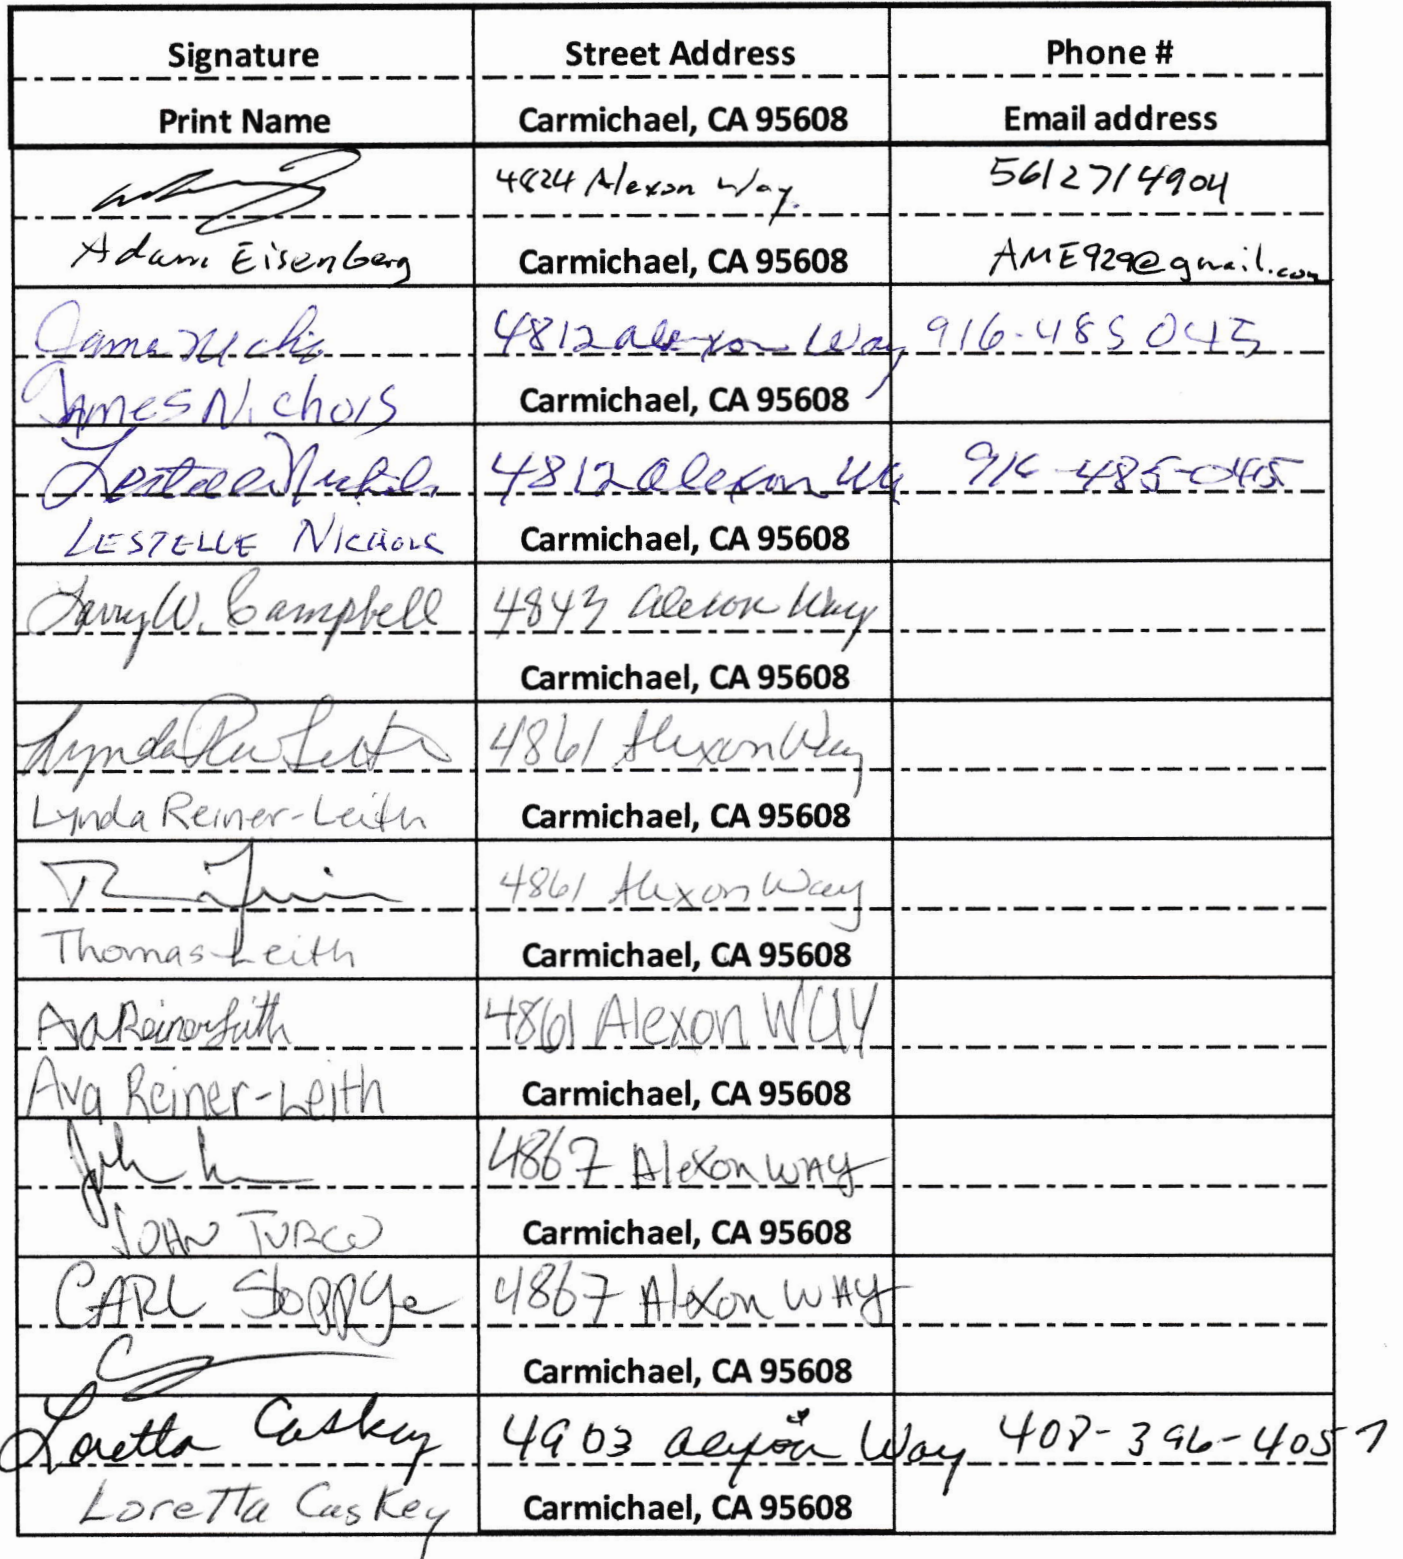 Signature Street Address Phone #
Print Name Carmichael, CA 95608 Email address
4824 Alexon Way. 5612714904
Adam Eisenberg Carmichael, CA 95608 AME929@gmail.com
4812 alexon Way 916-485 045
James Nichols Carmichael, CA 95608
Lestelle Nichols 4812 Alexon 916-485-045
LESTELLE Nichols Carmichael, CA 95608
Larry W. Campbell 4843 Alexon Way
Carmichael, CA 95608
4861 Alexon Way
Lynda Reiner-Leith Carmichael, CA 95608
4861 Alexon Way
Thomas Leith Carmichael, CA 95608
Ava Reiner Leith 4861 Alexon WAY
Ava Reiner-Leith Carmichael, CA 95608
4867 Alexon WAY
JOHN TURCO Carmichael, CA 95608
CARL 4867 Alexon WAY
Carmichael, CA 95608
Loretta Caskey 4903 alexon Way 408-396-4057
Loretta Caskey Carmichael, CA 95608